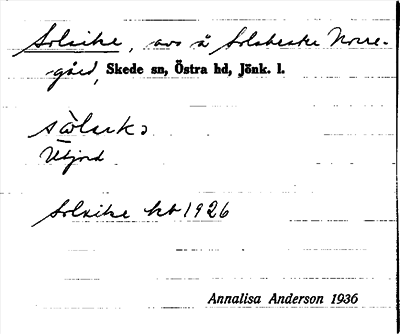 Solsike, avs å Solaberke Norre-
gård, Skede sn, Östra hd, Jönk. l.
Utjord
Solsike kb 1926
Annalisa Anderson 1936